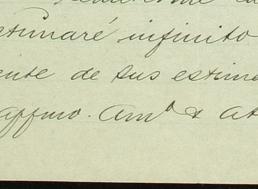 estimaré infinito
ente de sus estima
affmo. Am° & At